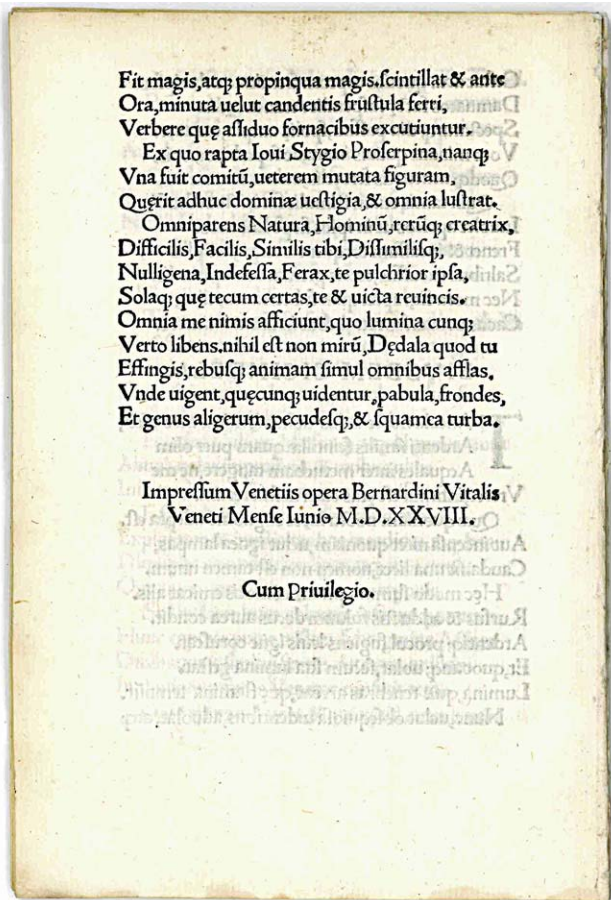 Fit magis,atq; propinqua magis.ſcintillat & ante
Ora,minuta uelut candentis fruſtula ferri,
Verbere quę aſſiduo fornacibus excutiuntur.
Ex quo rapta Ioui Stygio Proſerpina,nanq;
Vna fuit comitū,ueterem mutata figuram,
Quęrit adhuc dominæ ueſtigia,& omnia luſtrat.
Omniparens Natura,Hominū,rerūq; creatrix,
Difficilis,Facilis,Similis tibi,Diſſimilisq;,
Nulligena,Indefeſſa,Ferax,te pulchrior ipſa,
Solaq; quę tecum certas,te & uicta reuincis.
Omnia me nimis afficiunt,quo lumina cunq;
Verto libens.nihil eſt non mirū,Dędala quod tu
Effingis,rebuſq; animam ſimul omnibus afflas.
Vnde uigent,quęcunq; uidentur,pabula,frondes,
Et genus aligerum,pecudeſq;,& ſquamea turba.
Impreſſum Venetiis opera Bernardini Vitalis
Veneti Menſe Iunio M.D.XXVIII.
Cum Priuilegio.